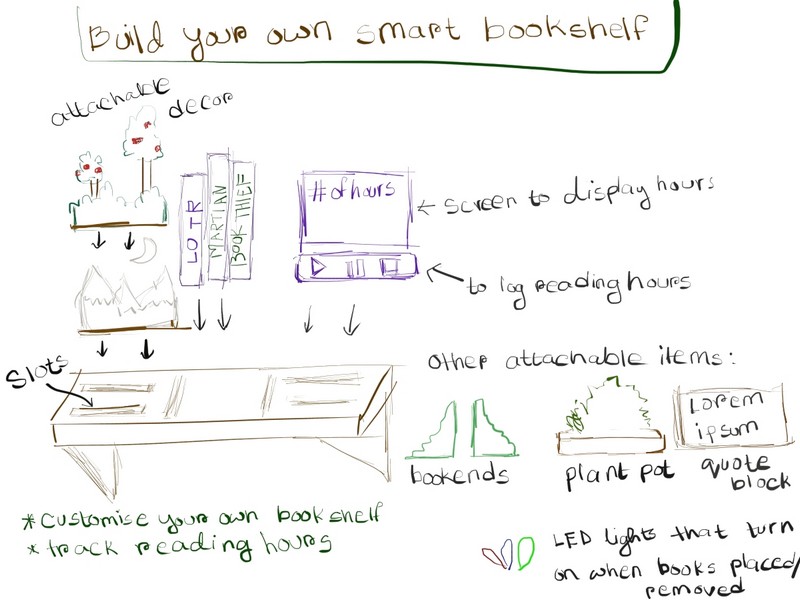 Build your own smart bookshelf
attachable
decor
LOTR
MARTIAN
BOOK THIEF
# of hours
screen to display hours
to log reading hours
Slots
Other attachable items:
bookends
plant pot
Lorem
ipsum
quote
block
*customise your own bookshelf
*track reading hours
LED lights that turn
on when books placed/
removed